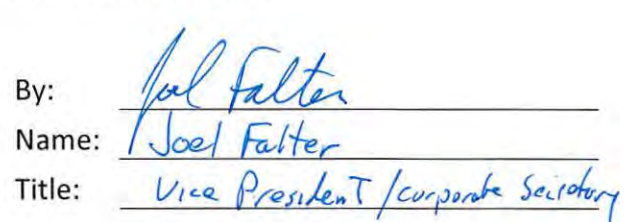 By: Joel Falter
Name: Joel Falter
Title: Vice President / corporate Secretary